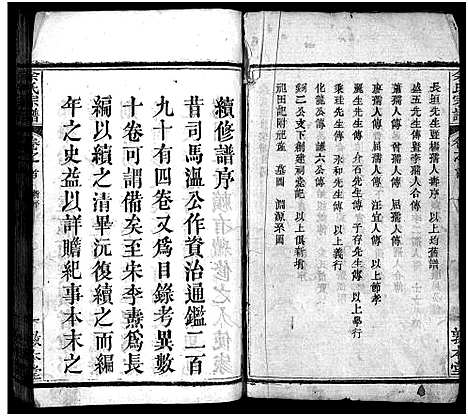 長垣先生暨楊孺人壽序 以上均舊譜
盛五先生傳暨李孺人合傳
蕭孺人傳 曾孺人傳 屈孺人傳
唐孺人傳 汪宜人傳 以上節孝
麗生先生傳 介石先生傳 子存先生傳
秉珪先生傳 永和先生傳 以上義行
化龍公傳 謙六公傳
鄭二公支下創建祠堂記 以上新增
祖田記附祀產 墓圖 淵源來圖
敦本堂
續修譜序
昔司馬溫公作資治通鑑二百
九十有四卷又爲目錄考異數
十卷可謂備矣至朱李燾爲長
編以續之清畢沅復續之而編
年之史益以詳贍紀事本末之
余氏宗譜
卷之首
敦本堂